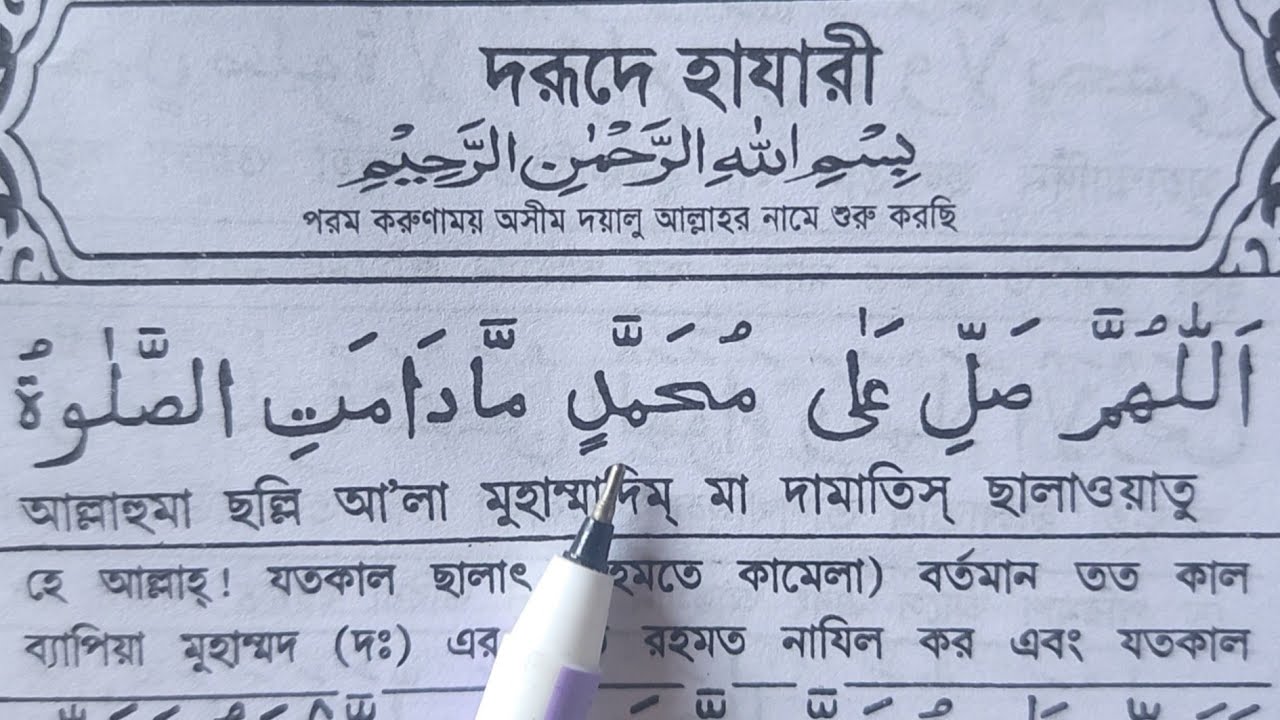 দরূদে হাযারী
بِسْمِ اللهِ الرَّحْمٰنِ الرَّحِيْمِ
পরম করুণাময় অসীম দয়ালু আল্লাহর নামে শুরু করছি
اَللّٰهُمَّ صَلِّ عَلٰى مُحَمَّدٍ مَّادَامَتِ الصَّلٰوةُ
আল্লাহুমা ছল্লি আ'লা মুহাম্মাদিম্ মা দামাতিস্ ছালাওয়াতু
হে আল্লাহ্! যতকাল ছালাৎ কামেলা) বর্তমান তত কাল
ব্যাপিয়া মুহাম্মদ (দঃ) এর রহমত নাযিল কর এবং যতকাল